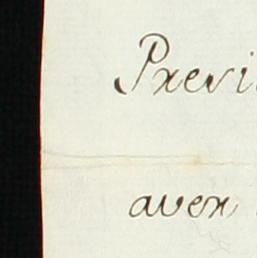 Previ
aven